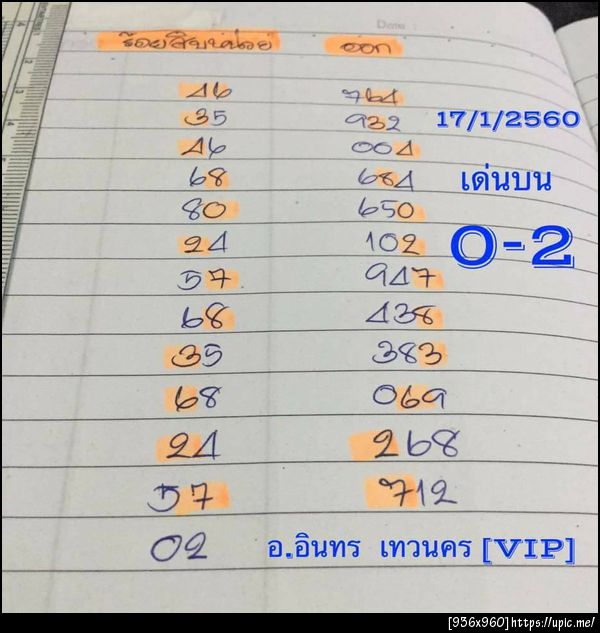 Date :
ร้อยสิบหน่วย ออก
46 764
35 932 17/1/2560
46 004
68 684 เด่นบน
80 650
24 102 0-2
57 947
68 438
35 383
68 069
24 268
57 712
02 อ.อินทร เทวนคร [VIP]
[936x960]https://upic.me/